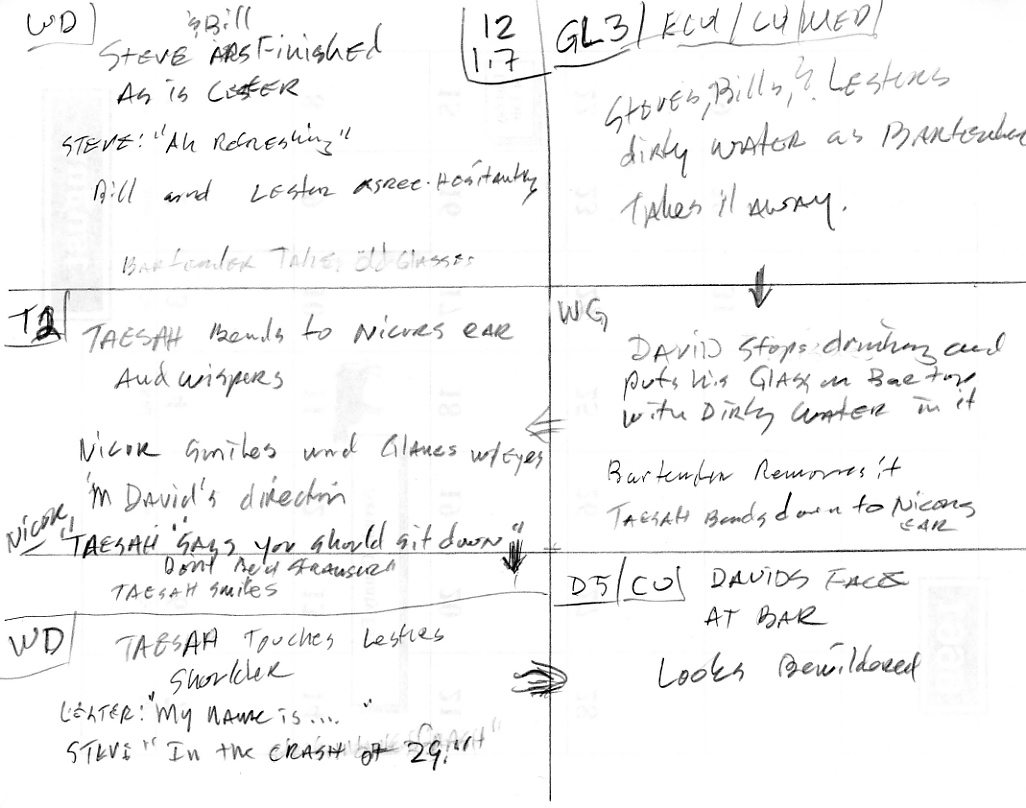 WD
& Bill
STEVE ARS Finished
AS is LESTER
STEVE: "Ah Refreshing"
Bill and LESTER agree. Hesitantly
BARTENDER TAKES Old GLASSES
12
1.7
GL3/ECU/CU/MED/
STEVES, Bills, & LESTERS
dirty WATER as BARTENDER
TAKES it AWAY.
T2
TAESAH Bends to NICORS EAR
And wispers
NICOR Smiles and Glances w/Eyes
in David's direction
NICOR "TAESAH SAYS you should sit down"
Don't be a STRANGER"
TAESAH Smiles
WG
DAVID stops drinking and
puts his GLASS on Bar top
with DIRTY WATER in it
Bartender Removes it
TAESAH Bends down to Nicors
EAR
WD
TAESAH Touches Lesters
Shoulder
LESTER: "My NAME is... "
STEVE " In the CRASH of 29."
D5/CU DAVIDS FACE
AT BAR
Looks Bewildered